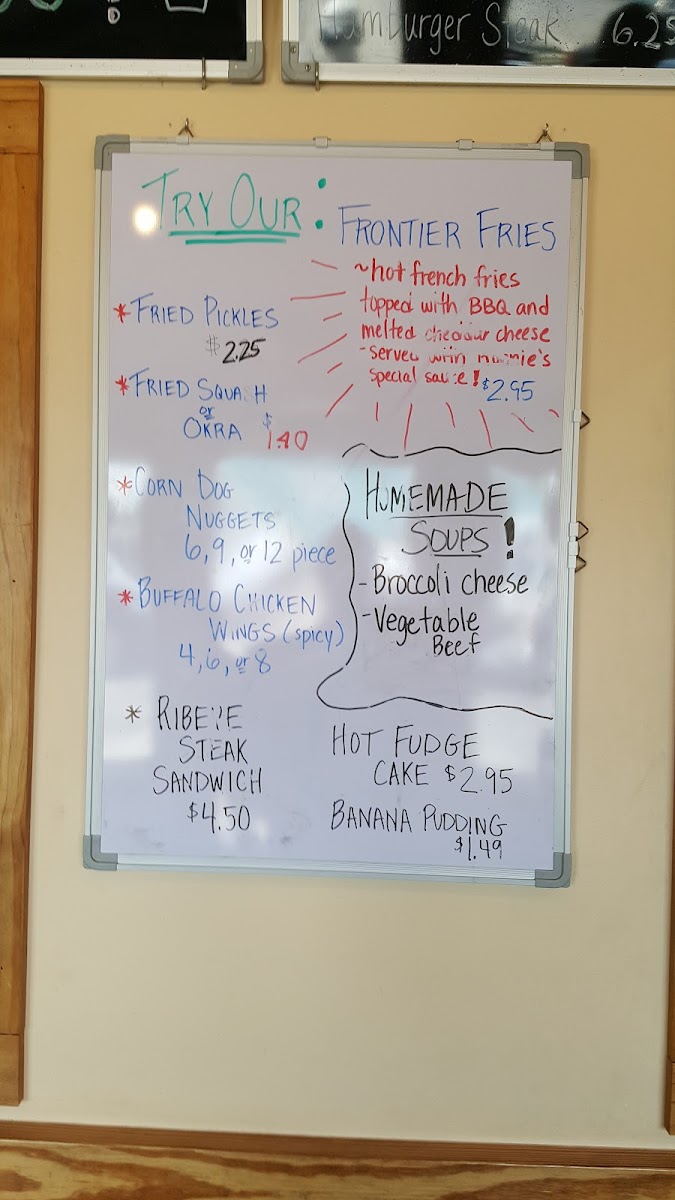 Hamburger Steak 6.25
TRY OUR:
* FRIED PICKLES
$2.25
* FRIED SQUASH
or
OKRA $1.40
* CORN DOG
NUGGETS
6, 9, or 12 piece
* BUFFALO CHICKEN
WINGS (spicy)
4, 6, or 8
* RIBEYE
STEAK
SANDWICH
$4.50
FRONTIER FRIES
~hot french fries
topped with BBQ and
melted cheddar cheese
-served with
special sauce! $2.95
HOMEMADE
SOUPS!
-Broccoli cheese
-Vegetable
Beef
HOT FUDGE
CAKE $2.95
BANANA PUDDING
$1.49